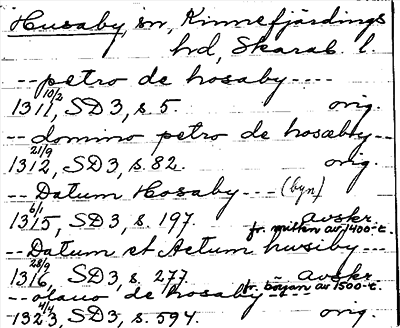 Husaby, sn, Kinnefjärdings
hd, Skarab. l.
-- petro de hosaby ----
1311 10/2, SD 3, s. 5. orig.
-- domino petro de hosæby --
1312 21/9, SD 3, s. 82. orig.
-- Datum Hosaby --- (byn)
1315 6/1, SD 3, s. 197. avskr.
fr. mitten av 1400-t.
-- Datum et Actum husiby ---
1316 28/9, SD 3, s. 277. avskr.
fr. början av 1500-t.
-- olauo de hosaby ----
1323 4/4, SD 3, s. 594. orig.